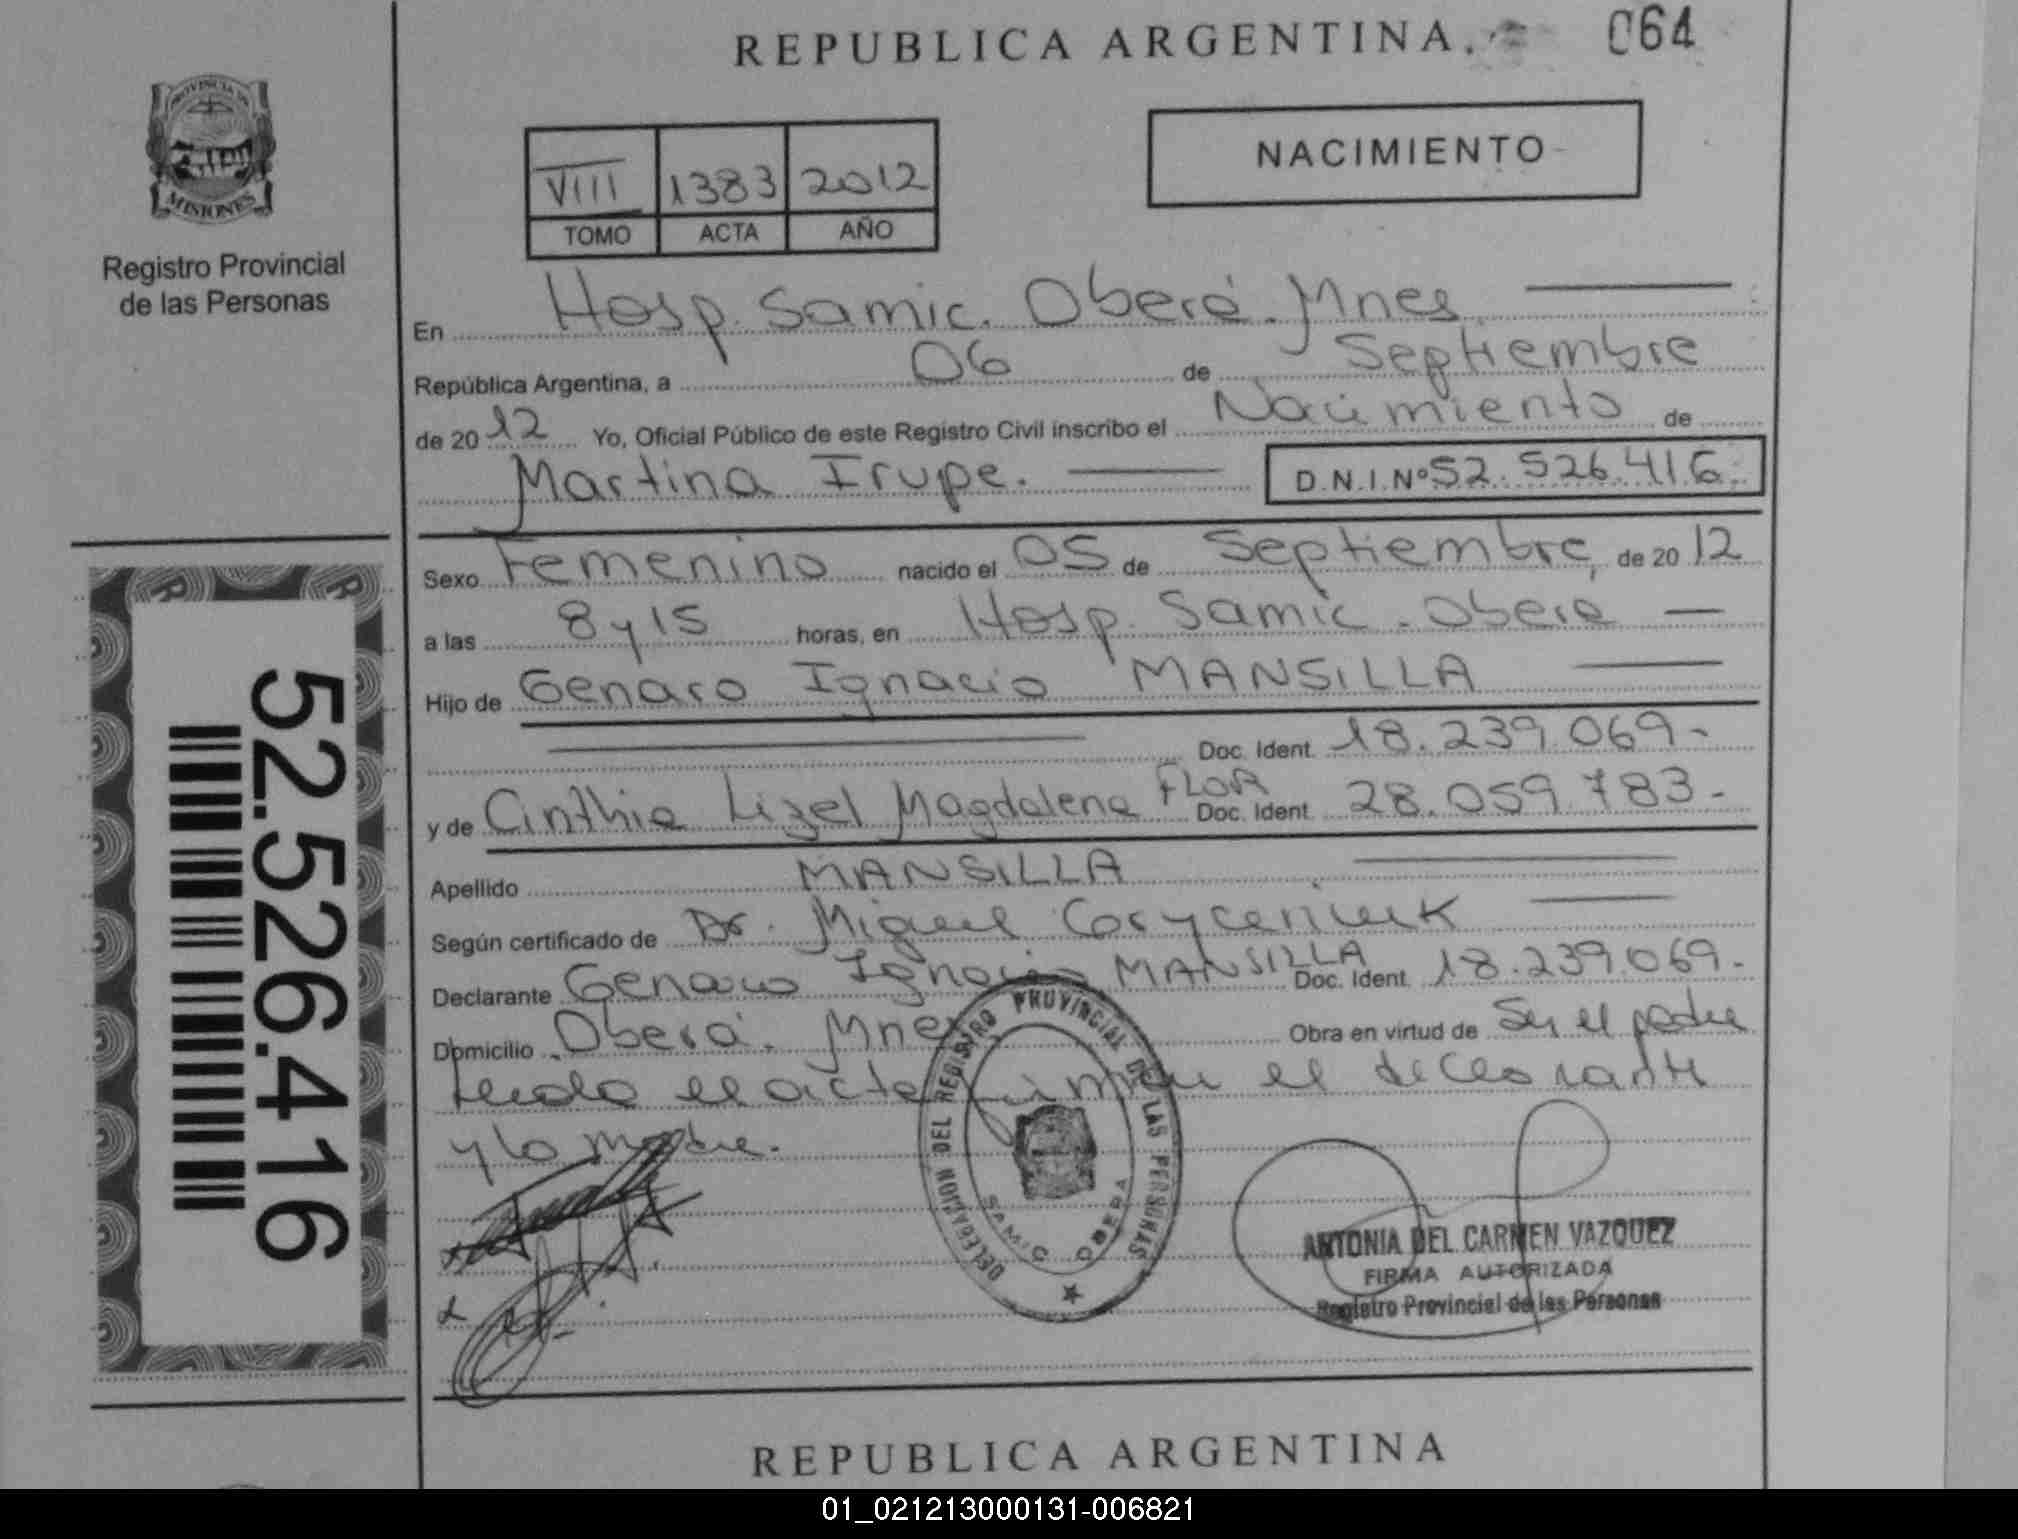 REPUBLICA ARGENTINA.
064
PROVINCIA DE
MISIONES
Registro Provincial
de las Personas
NACIMIENTO
VIII 1383 2012
TOMO ACTA AÑO
En Hosp. Samic. Oberá. Mnes.
República Argentina, a 06 de Septiembre
de 2012 Yo, Oficial Público de este Registro Civil inscribo el Nacimiento de
Martina Irupe.
D.N.I.Nº 52.526.416
Sexo Femenino nacido el 05 de Septiembre, de 2012
a las 8 y 15 horas, en Hosp. Samic. Obera
Hijo de Genaro Ignacio MANSILLA
Doc. Ident. 18.239.069-
y de Cinthia Lizel Magdalena FLOR Doc. Ident. 28.059.783-
Apellido MANSILLA
Según certificado de Dr. Miguel
Declarante Genaro Ignacio MANSILLA Doc. Ident. 18.239.069-
Domicilio Oberá. Mnes Obra en virtud de Ser el padre
leida el acta firman el declarante
y la madre.
DELEGACION DEL REGISTRO PROVINCIAL DE LAS PERSONAS
SAMIC OBERA
ANTONIA DEL CARMEN VAZQUEZ
FIRMA AUTORIZADA
Registro Provincial de las Personas
52.526.416
REPUBLICA ARGENTINA
01_021213000131-006821